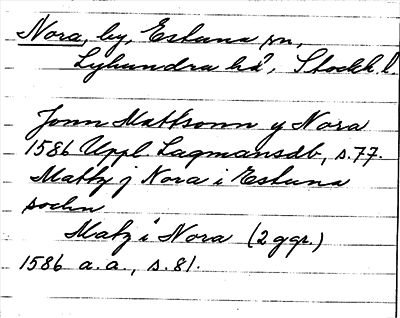 Nora, by, Estuna sn,
Lyhundra hd, Stockh. l.
Jonn Mattsonn y Nora
1586 Uppl. Lagmansdb, s. 77.
Mattz j Nora i Estuna
sochn
Matz i Nora (2 ggr.)
1586 a. a., s. 81.